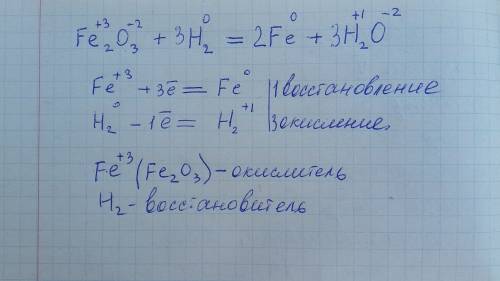 Fe₂⁺³O₃⁻² + 3H₂⁰ = 2Fe⁰ + 3H₂⁺¹O⁻²
Fe⁺³ + 3ē = Fe⁰ | 1 восстановление
H₂⁰ - 1ē = H₂⁺¹ | 3 окисление,
Fe⁺³ (Fe₂O₃) - окислитель
H₂ - восстановитель